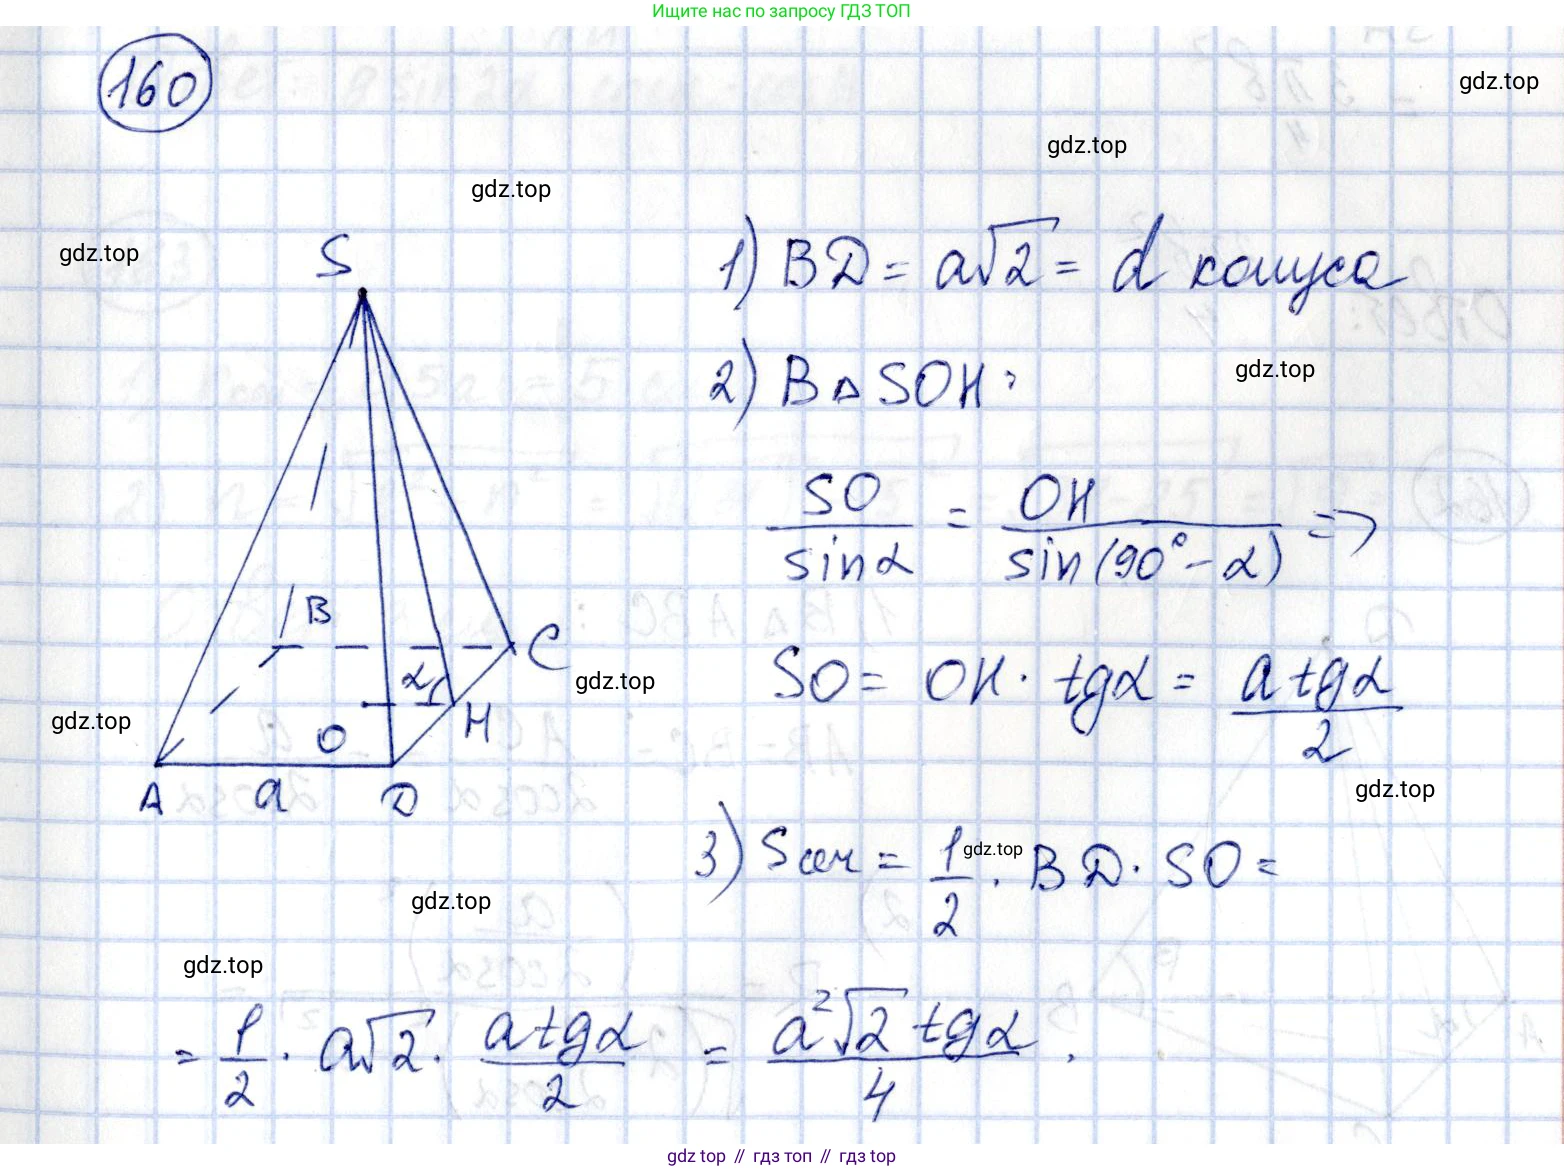 Ищите нас по запросу ГДЗ ТОП
160
gdz.top
gdz.top
gdz.top
gdz.top
S
1) BD = a√2 = d конуса
gdz.top
2) В △ SOH:
SO / sinα = OH / sin(90° - α) =>
B
C
α
gdz.top
SO = OH · tgα = a tgα / 2
gdz.top
O
H
A
a
D
gdz.top
3) Sсеч = 1/2 · BD · SO =
gdz.top
gdz.top
gdz.top
= 1/2 · a√2 · a tgα / 2 = a²√2 tgα / 4 .
gdz.top // гдз топ // гдз.top